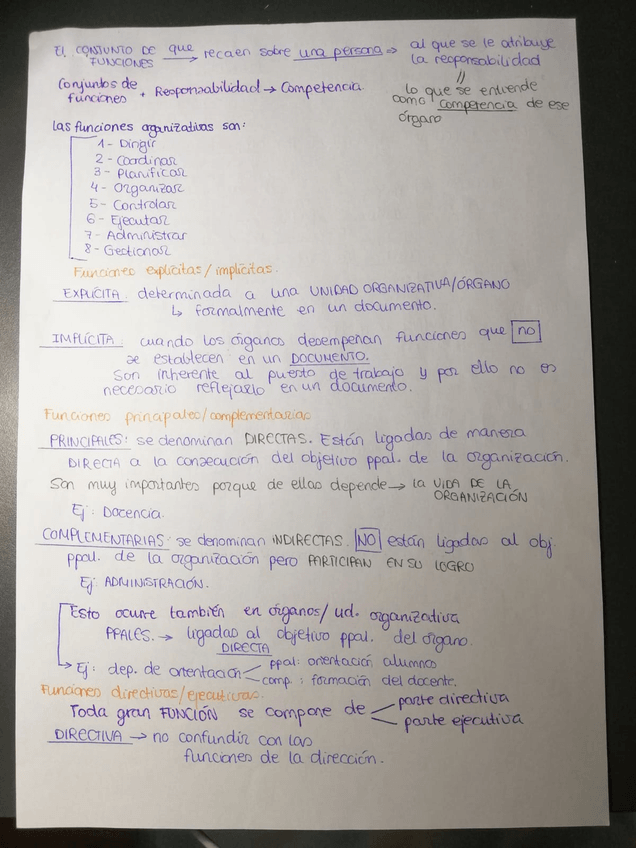 EL CONJUNTO DE FUNCIONES que → recaen sobre una persona ⇒ al que se le atribuye
la responsabilidad
||
lo que se entiende
como competencia de ese
órgano
Conjuntos de funciones + Responsabilidad → Competencia.
las funciones organizativas son:
1- Dirigir
2- Coordinar
3- Planificar
4- Organizar
5- Controlar
6- Ejecutar
7- Administrar
8- Gestionar
Funciones explícitas/implícitas.
EXPLÍCITA: determinada a una UNIDAD ORGANIZATIVA/ÓRGANO
↳ formalmente en un documento.
IMPLÍCITA: cuando los órganos desempeñan funciones que no
se establecen en un DOCUMENTO.
Son inherente al puesto de trabajo y por ello no es
necesario reflejarlo en un documento.
Funciones principales/complementarias
PRINCIPALES: se denominan DIRECTAS. Están ligadas de manera
DIRECTA a la consecución del objetivo ppal. de la organización.
Son muy importantes porque de ellas depende → la VIDA DE LA
ORGANIZACIÓN
Ej: Docencia.
COMPLEMENTARIAS: se denominan INDIRECTAS. NO están ligadas al obj.
ppal. de la organización pero PARTICIPAN EN SU LOGRO
Ej: ADMINISTRACIÓN.
Esto ocurre también en órganos/ud. organizativa
PPALES. → ligadas al objetivo ppal. del órgano.
DIRECTA
Ej: dep. de orientación ppal: orientación alumnos
comp.: formación del docente.
Funciones directivas/ejecutivas.
Toda gran FUNCIÓN se compone de parte directiva
parte ejecutiva
DIRECTIVA → no confundir con las
funciones de la dirección.